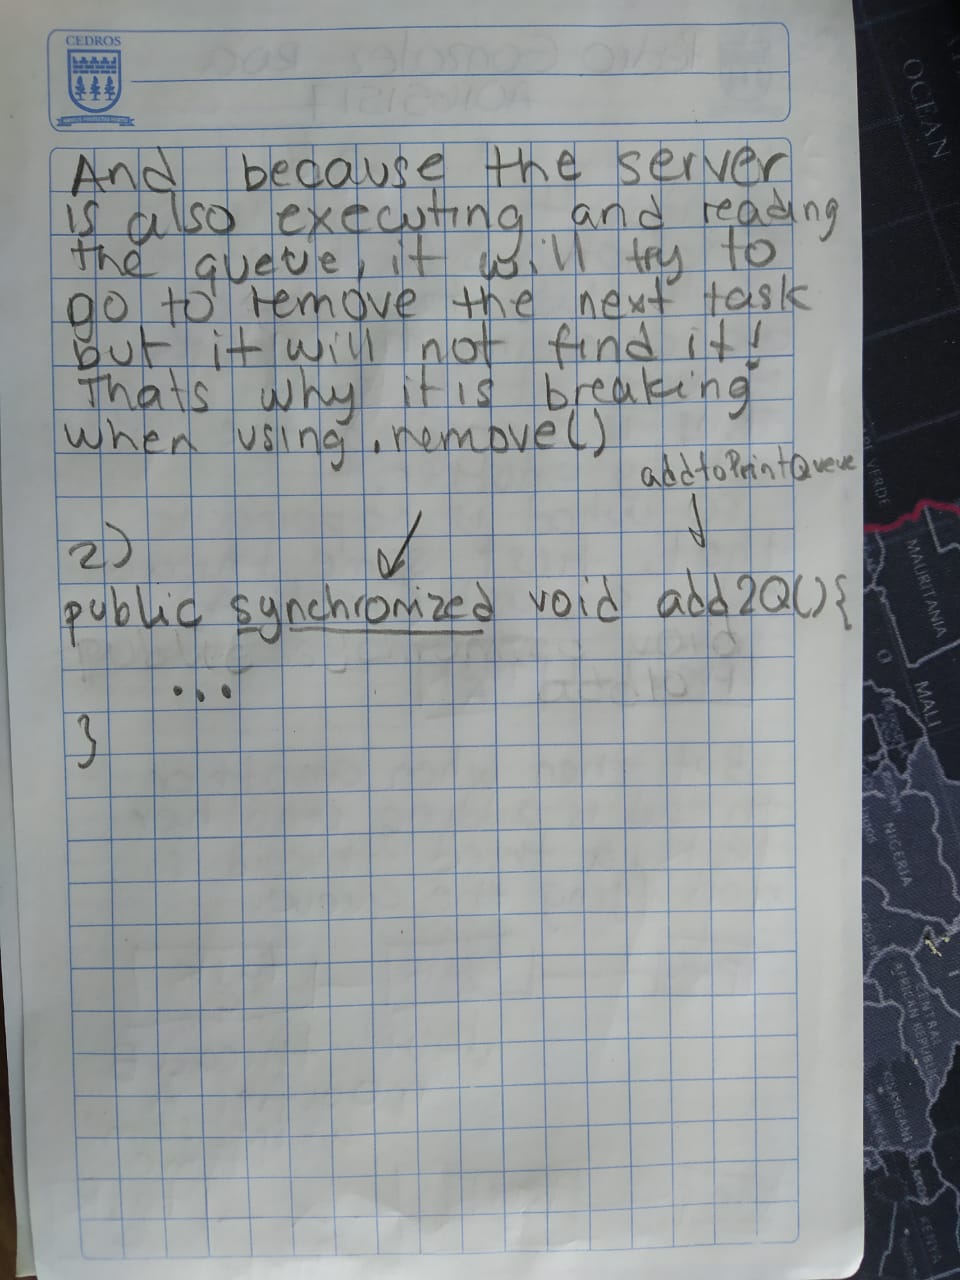 CEDROS
And because the server
is also executing and reading
the queue, it will try to
go to remove the next task
but it will not find it!
Thats why it is breaking
when using .remove()
addtoPrintQueue
2)
public synchronized void add2Q(){
...
}
OCEAN
VERDE
MAURITANIA
MALI
NIGERIA
CENTRAL
AFRICAN REPUBLIC
KENYA